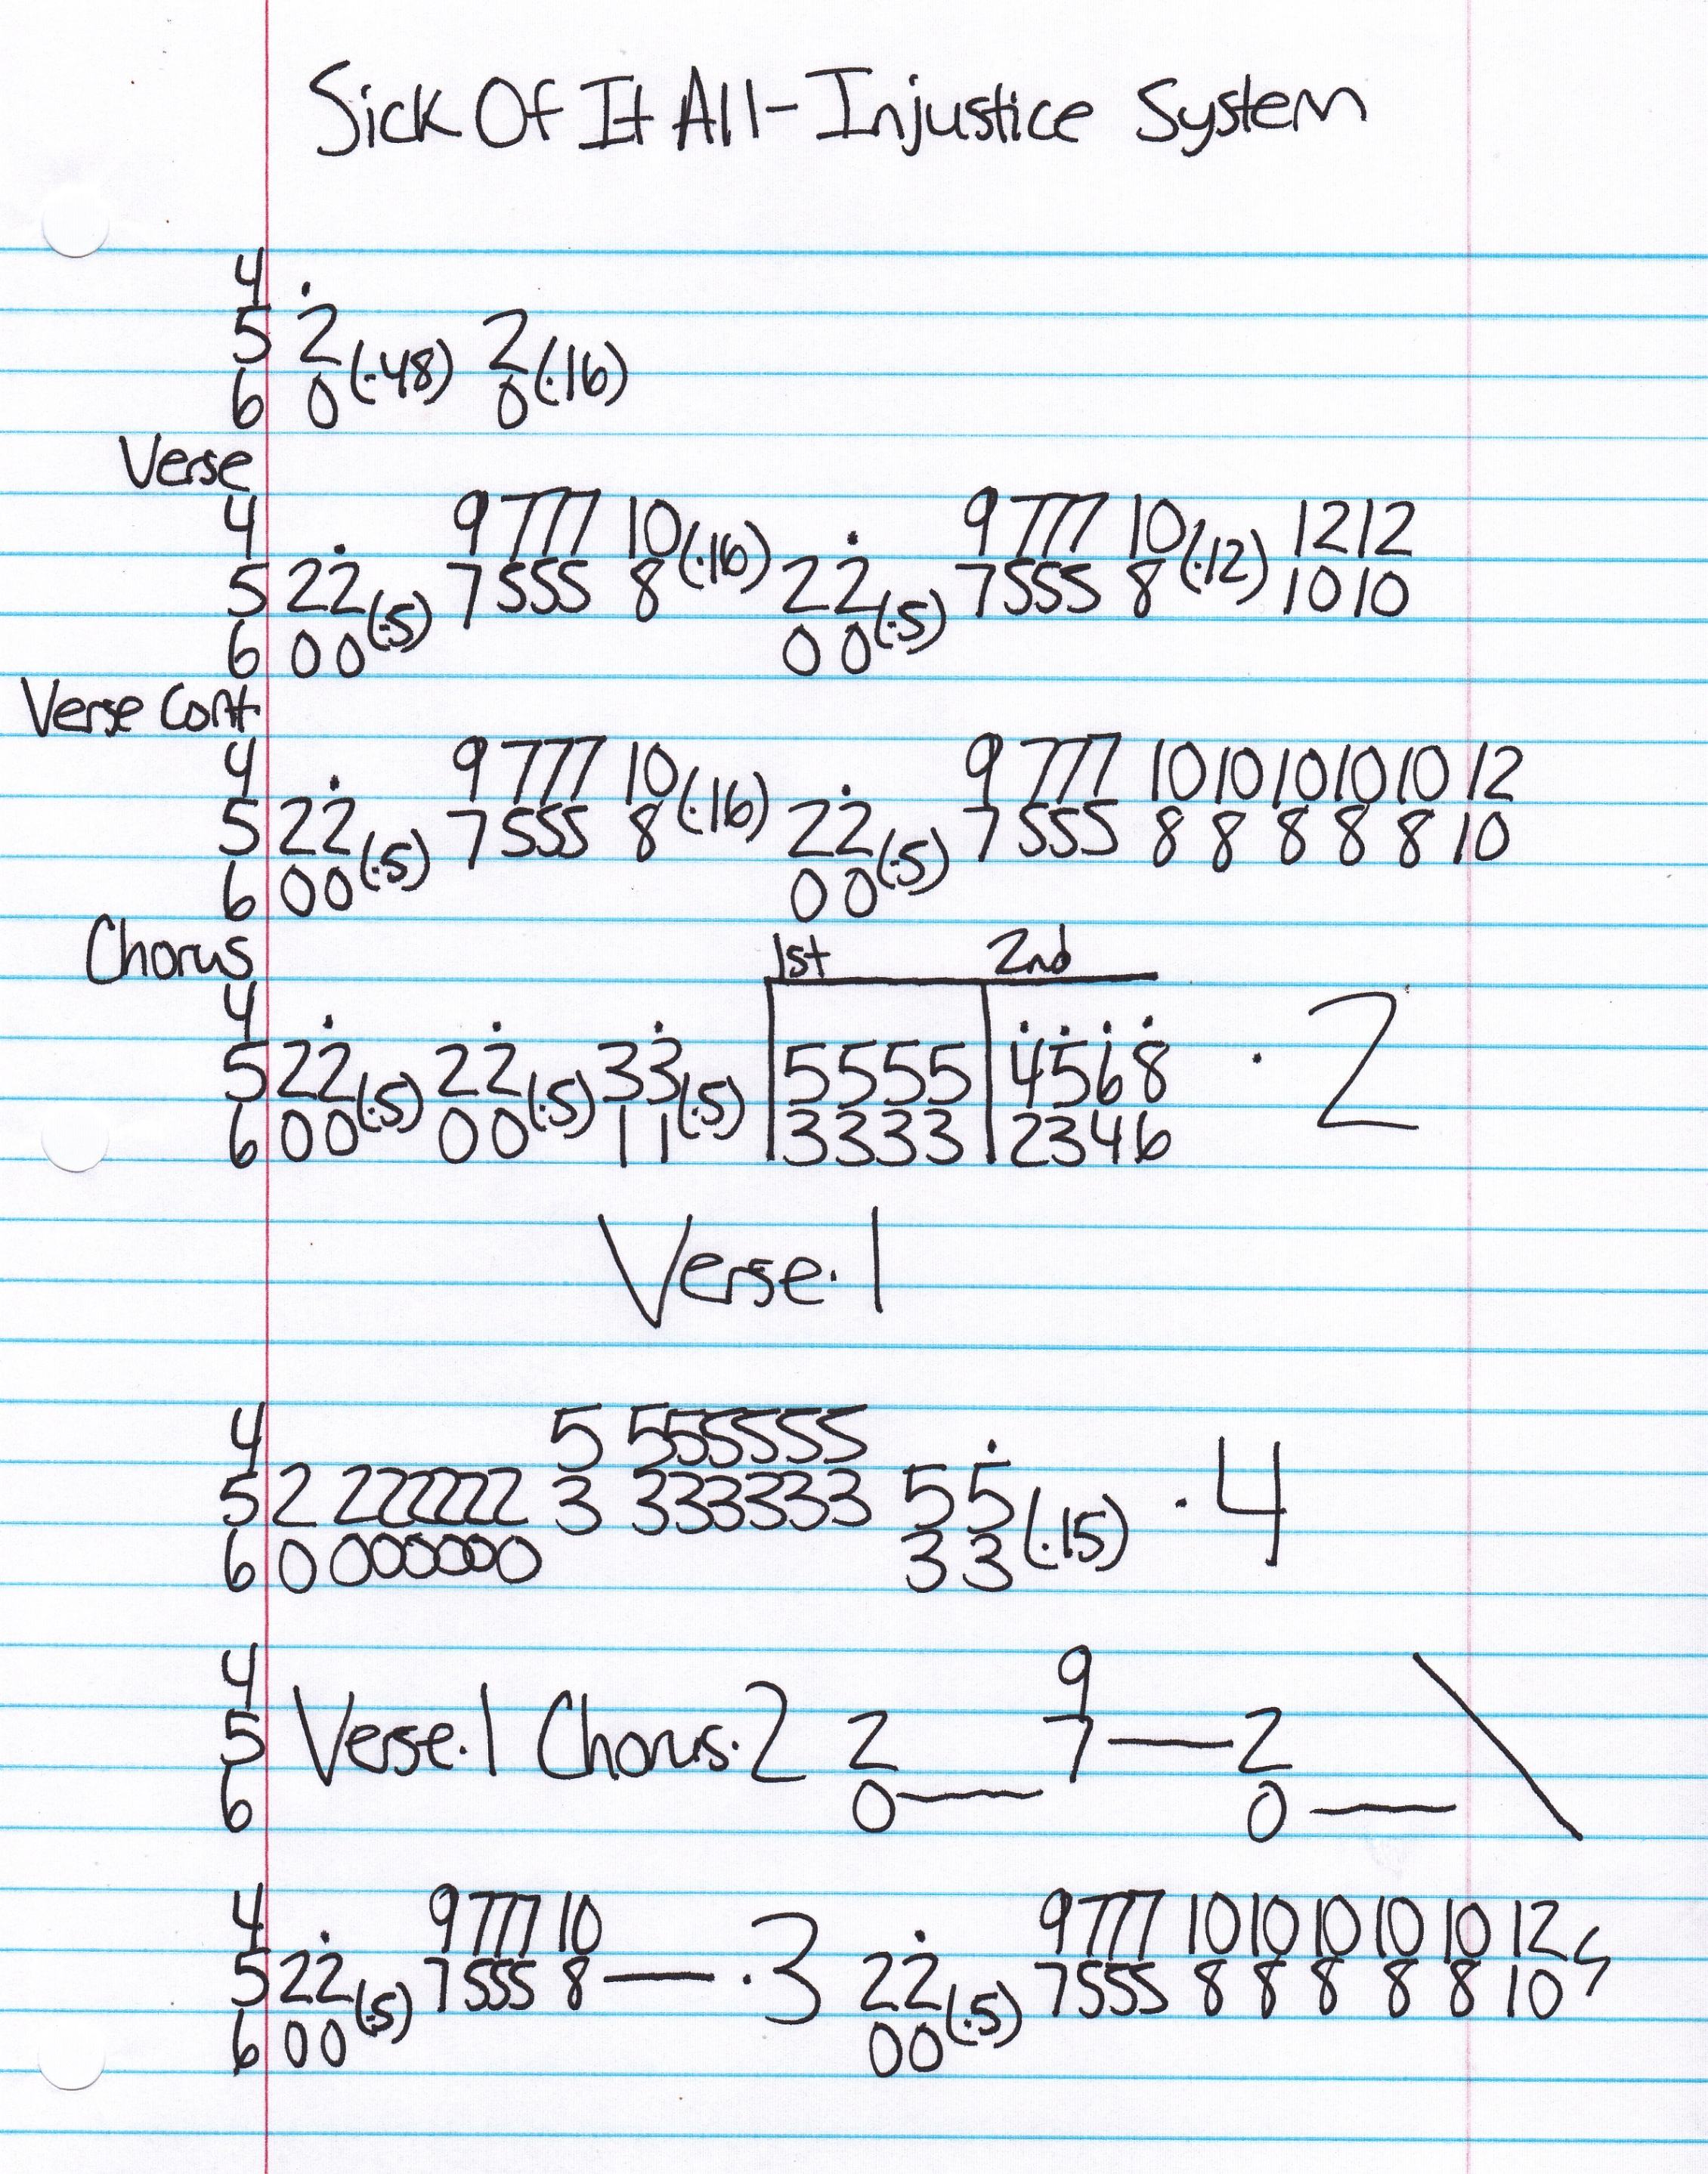 Sick Of It All - Injustice System
4 .
5 2 2
6 0 (·48) 0 (·16)
Verse
4 . 9 777 10 (·16) . 9 777 10 (·12) 12 12
5 22 7 555 8 22 7 555 8 10 10
6 00 (·5) 00 (·5)
Verse Cont.
4 . 9 777 10 (·16) . 9 777 10 10 10 10 10 12
5 22 7 555 8 22 7 555 8 8 8 8 8 10
6 00 (·5) 00 (·5)
Chorus 1st 2nd
4 . . . . . . .
5 22 22 33 5555 4568 · 2
6 00 (·5) 00 (·5) 11 (·5) 3333 2346
Verse · 1
4 5 555555 .
5 2 222222 3 333333 55 · 4
6 0 000000 33 (·15)
4 9
5 Verse · 1 Chorus · 2 2 7 — 2
6 0 — 0 — \
4 . 9 777 10 . 9 777 10 10 10 10 10 12
5 22 7 555 8 — · 3 22 7 555 8 8 8 8 8 10
6 00 (·5) 00 (·5)